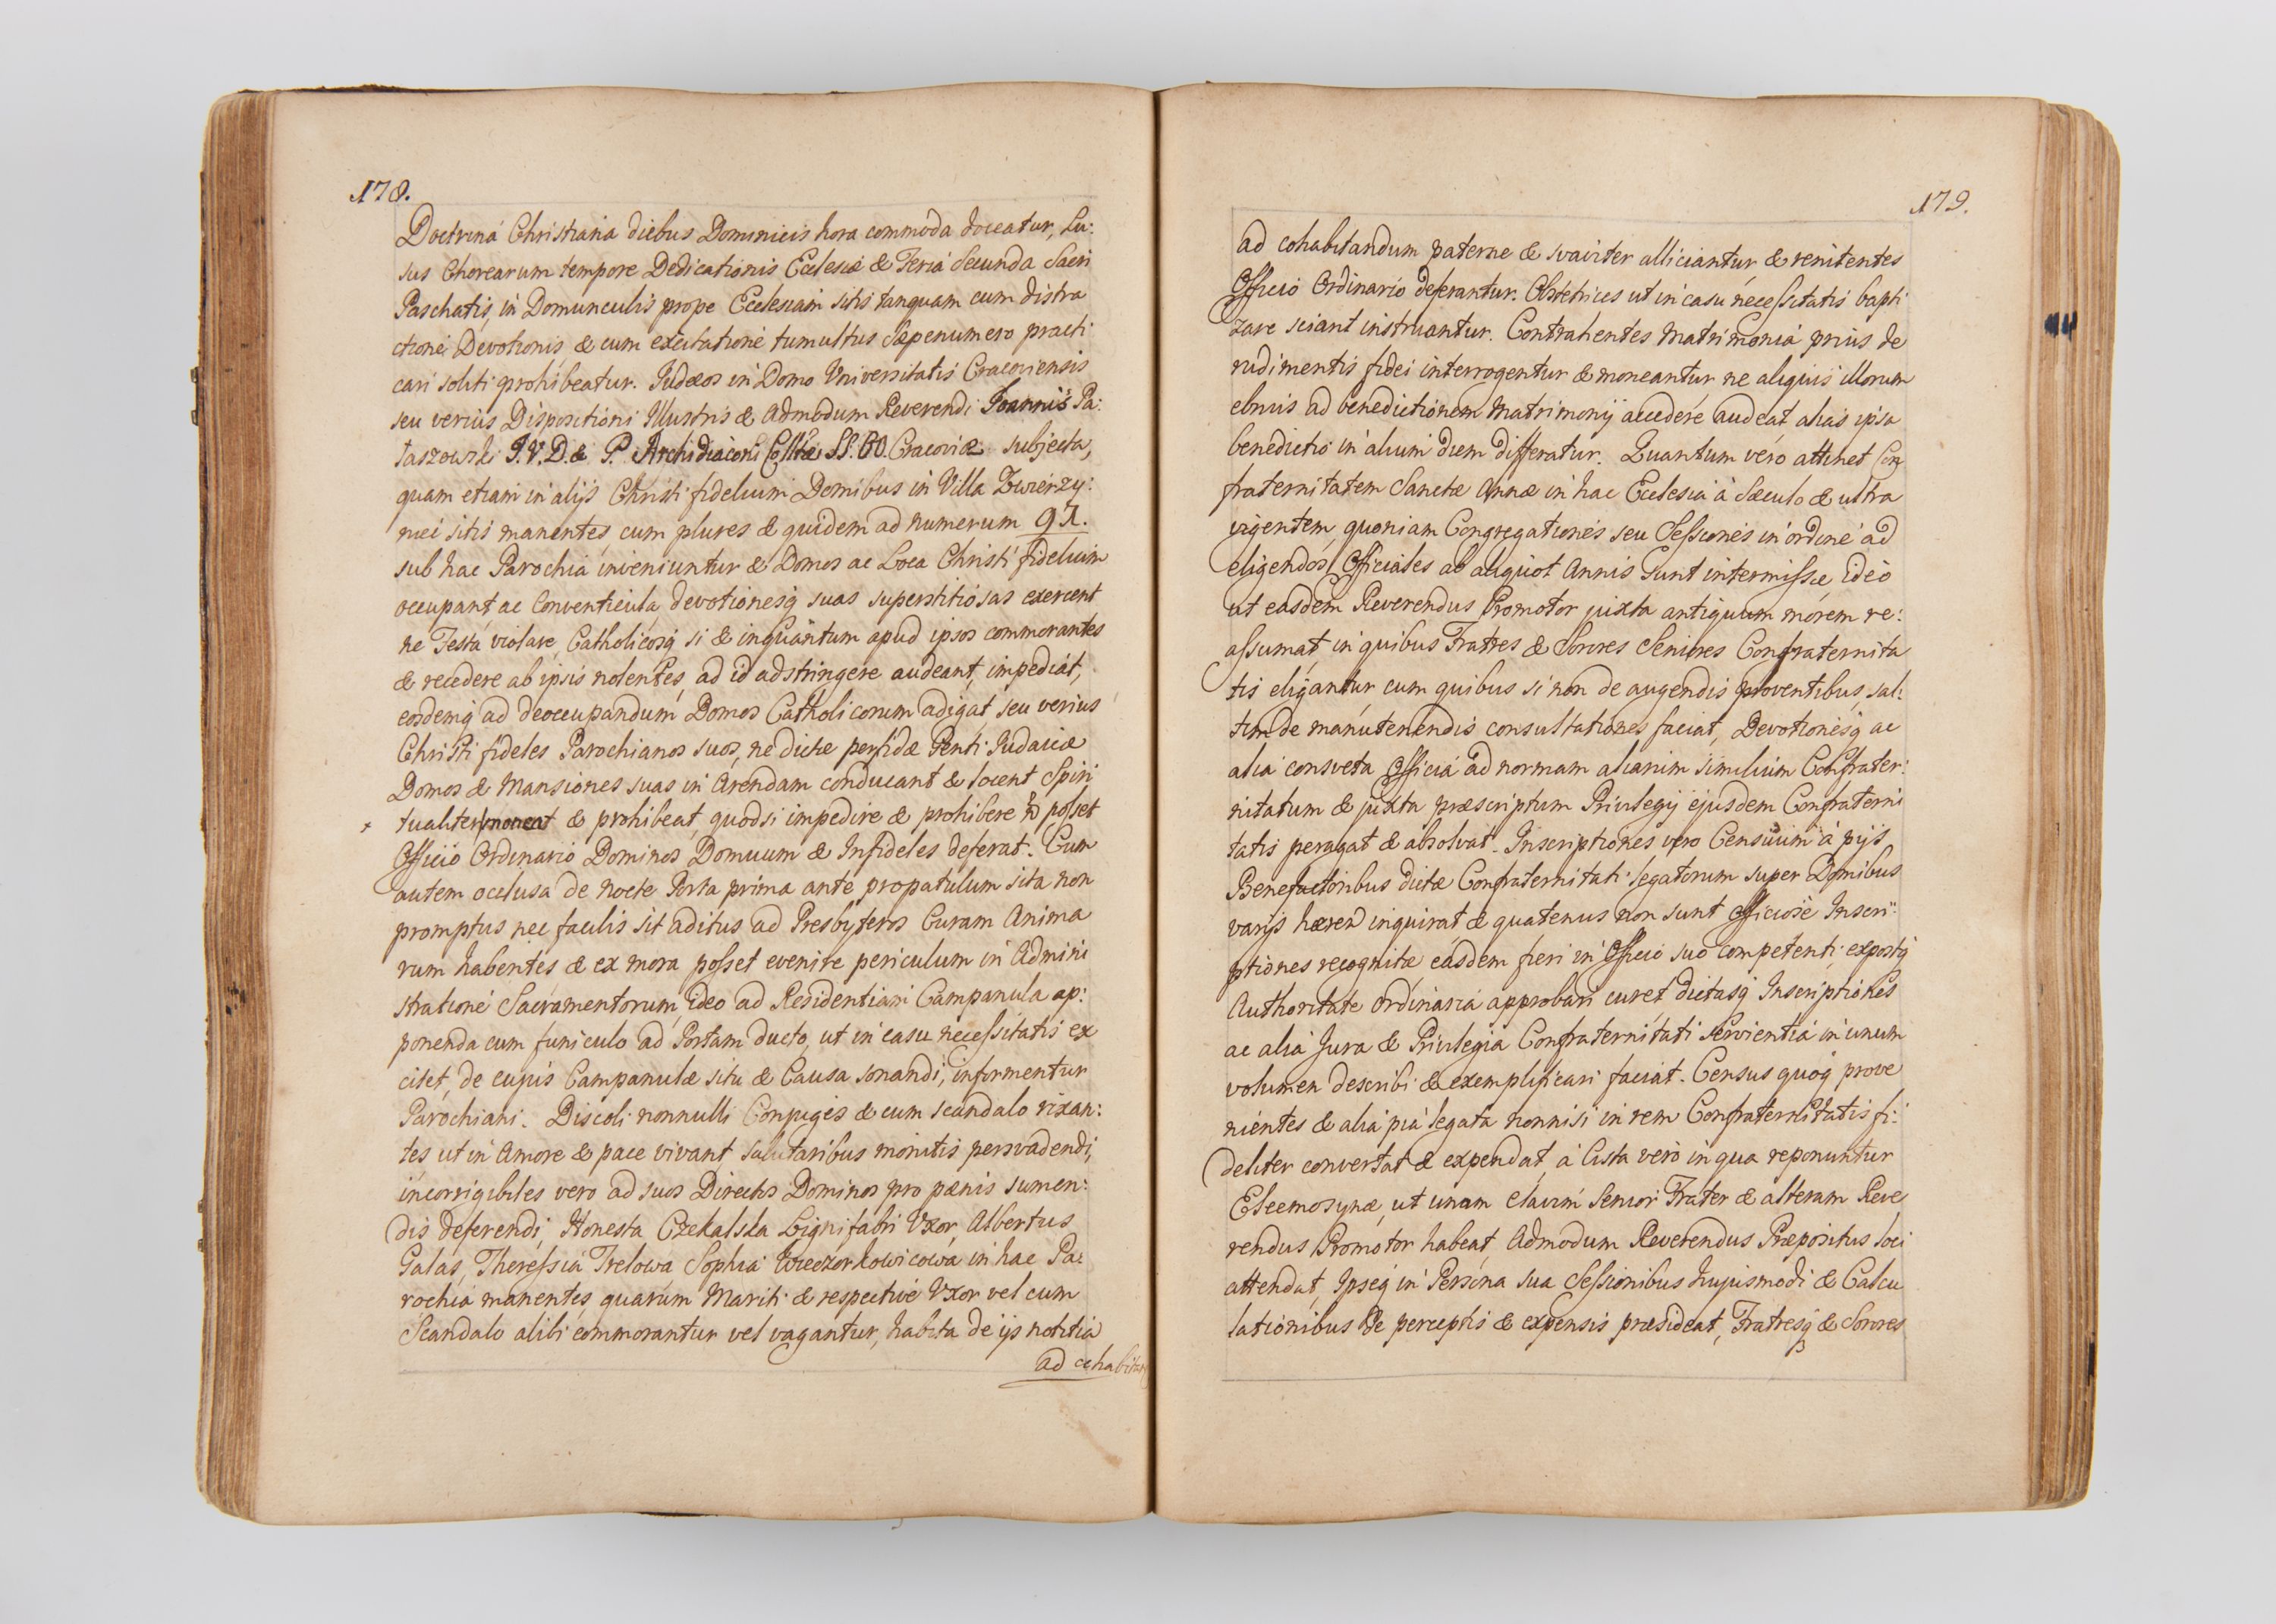 178.
Doctrina Christiana diebus Dominicis hora commoda doceatur, Lu:
sus Chorearum tempore Dedicationis Ecclesiæ & Feria Secunda Sacri
Paschatis, in Domunculis prope Ecclesiam sitis tanquam cum distra
ctione Devotionis, & cum excitatione tumultus sæpenumero practi
cari soliti prohibeatur. Judæos in Domo Universitatis Cracoviensis
seu verius Dispositioni Illustris & Admodum Reverendi Joannis Pa:
taszowski J.V.D. & P. Archidiaconi Collæ SS. OO. Cracoviæ subjecta,
quam etiam in alijs Christi fidelium Domibus in Villa Zwierzy:
niec sitis manentes, cum plures & quidem ad numerum 97.
sub hac Parochia inveniuntur & Domos ac Loca Christi fidelium
occupant, ac Conventicula, devotionesq suas superstitiosas exercent
ne Festa violare, Catholicosq si & inquantum apud ipsos commorantes
& recedere ab ipsis nolentes, ad id adstringere audeant, impediat,
eosdemq ad deoccupandum Domos Catholicorum adigat, seu verius
Christi fideles Parochianos suos, ne dictæ perfidæ Genti Judaicæ
Domos & Mansiones suas in Arendam conducant & locent Spiri
tualiter moneat & prohibeat, quodsi impedire & prohibere non posset
Officio Ordinario Dominos Domuum & Infideles deferat. Cum
autem occlusa de nocte Porta prima ante propatulum sita non
promptus nec facilis sit aditus ad Presbyteros Curam Anima
rum habentes & ex mora posset evenire periculum in Admini
stratione Sacramentorum, ideo ad Residentiam Campanula ap:
ponenda cum funiculo ad Portam ducto, ut in casu necessitatis ex
citet, de cujus Campanulæ situ & Causa sonandi, informentur
Parochiani. Discoli nonnulli Conjuges & cum scandalo rixan:
tes ut in Amore & pace vivant, salutaribus monitis persvadendi,
incorrigibiles vero ad suos Directos Dominos pro pænis sumen:
dis deferendi, Honesta Czekalska Lignifabri Uxor, Albertus
Galas, Theressia Trelowa Sophia Wieczorkowicowa in hac Pa:
rochia manentes, quarum Mariti & respective Uxor vel cum
Scandalo alibi commorantur vel vagantur, habita de ijs notitia
ad cohabitan
179.
ad cohabitandum paterne & svaviter alliciantur, & renitentes
Officio Ordinario deferantur. Obstetrices ut in casu necessitatis bapti
zare sciant instruantur. Contrahentes Matrimonia prius de
rudimentis fidei interrogentur & moneantur ne aliquis illorum
ebrius ad benedictionem Matrimonij accedere audeat, alias ipsa
benedictio in alium diem differatur. Quantum vero attinet Con
fraternitatem Sanctæ Annæ in hac Ecclesia à Sæculo & ultra
vigentem, quoniam Congregationes seu Sessiones in ordine ad
eligendos Officiales ab aliquot Annis sunt intermissæ, ideo
ut easdem Reverendus Promotor juxta antiquum morem re:
assumat, in quibus Fratres & Sorores Seniores Confraternita
tis eligantur, cum quibus si non de augendis proventibus, sal:
tim de manutenendis consultationes faciat, Devotionesq ac
alia consveta Officia ad normam aliarum similium Confrater:
nitatum & juxta præscriptum Privilegij ejusdem Confraterni
tatis peragat & absolvat. Inscriptiones vero Censuum à pijs
Benefactoribus dictæ Confraternitati legatorum super Domibus
varijs hæren inquirat, & quatenus non sunt Officiosè Inscri:
ptiones recognitæ easdem fieri in Officio suo competenti, expostq
Authoritate Ordinaria approbari curet, dictasq Inscriptiones
ac alia Jura & Privilegia Confraternitati servientia in unum
volumen describi & exemplificari faciat. Census quoq prove
nientes & alia pia legata nonnisi in rem Confraternitatis fi:
deliter convertat & expendat, à Cista vero in qua reponuntur
Eleemosynæ, ut unam clavim Senior Frater & alteram Reve
rendus Promotor habeat, Admodum Reverendus Præpositus loci
attendat, Ipseq in Persona sua Sessionibus hujusmodi & Calcu
lationibus de perceptis & expensis præsideat, Fratresq & Sorores